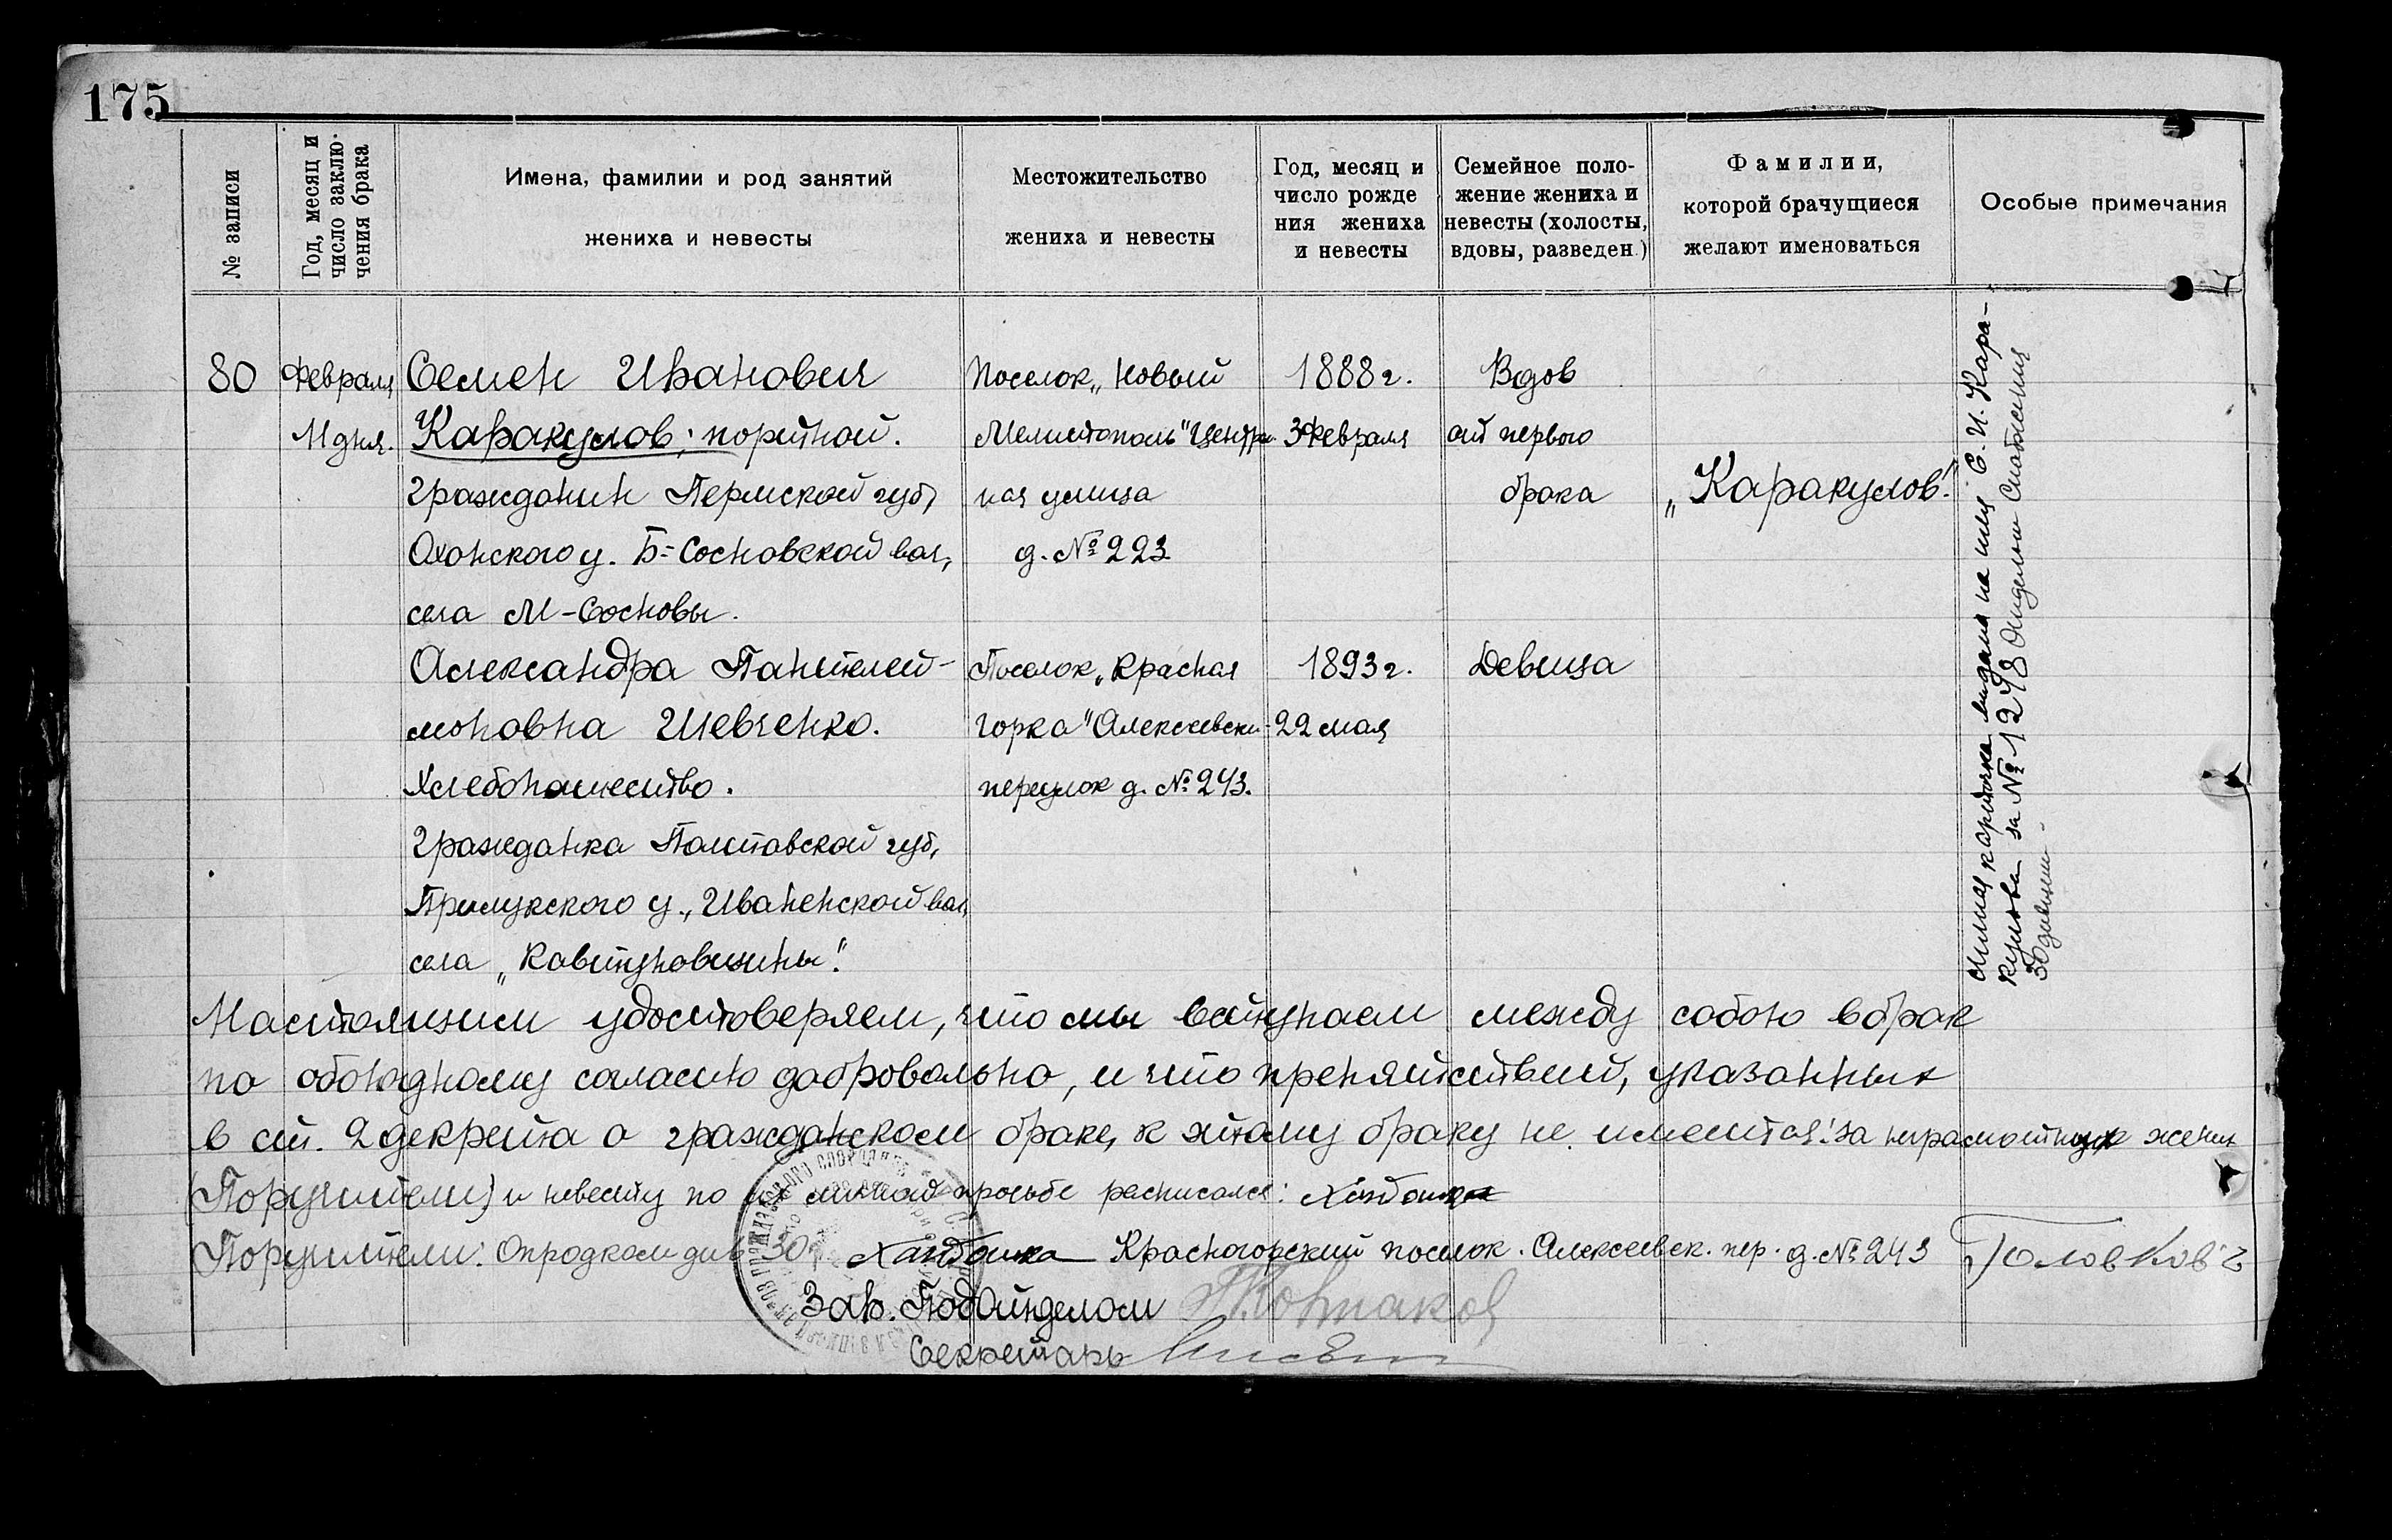 175
№ записи
Год, месяц и
число заклю-
чения брака
Имена, фамилии и род занятий
жениха и невесты
Местожительство
жениха и невесты
Год, месяц и
число рожде
ния жениха
и невесты
Семейное поло-
жение жениха и
невесты (холосты,
вдовы, разведен.)
Фамилии,
которой брачущиеся
желают именоваться
Особые примечания
80
Февраля
11 дня.
Семен Иванович
Каракулов; портной.
гражданин Пермской губ,
Оханского у. Б-Сосновской вол,
села М-Сосновы.
Александра Пантелей-
моновна Шевченко.
Хлебопашество.
гражданка Полтавской губ,
Прилукского у., Иваненской вол,
села „Ковтуновщины".
Поселок „Новый
Мелитополь" Центра
ная улица
д. № 223
Поселок „Красная
горка" Алексеевск
переулок д. № 243.
1888 г.
3 Февраля
1893 г.
22 мая
Вдов
от первого
брака
Девица
„Каракулов".
карточка выдана на имя С. И. Кара-
кулова за № 1278 Отделом Снабжения
Настоящим удостоверяем, что мы вступаем между собою в брак
по обоюдному согласию добровольно, и что препятствий, указанных
в ст. 2 декрета о гражданском браке, к этому браку не имеется. за неграмотных жених
(Поручители) и невесту по их личной просьбе расписался:
Поручители: Красногорский поселок. Алексеевск. пер. д. № 243
Зав. Подотделом
Секретарь